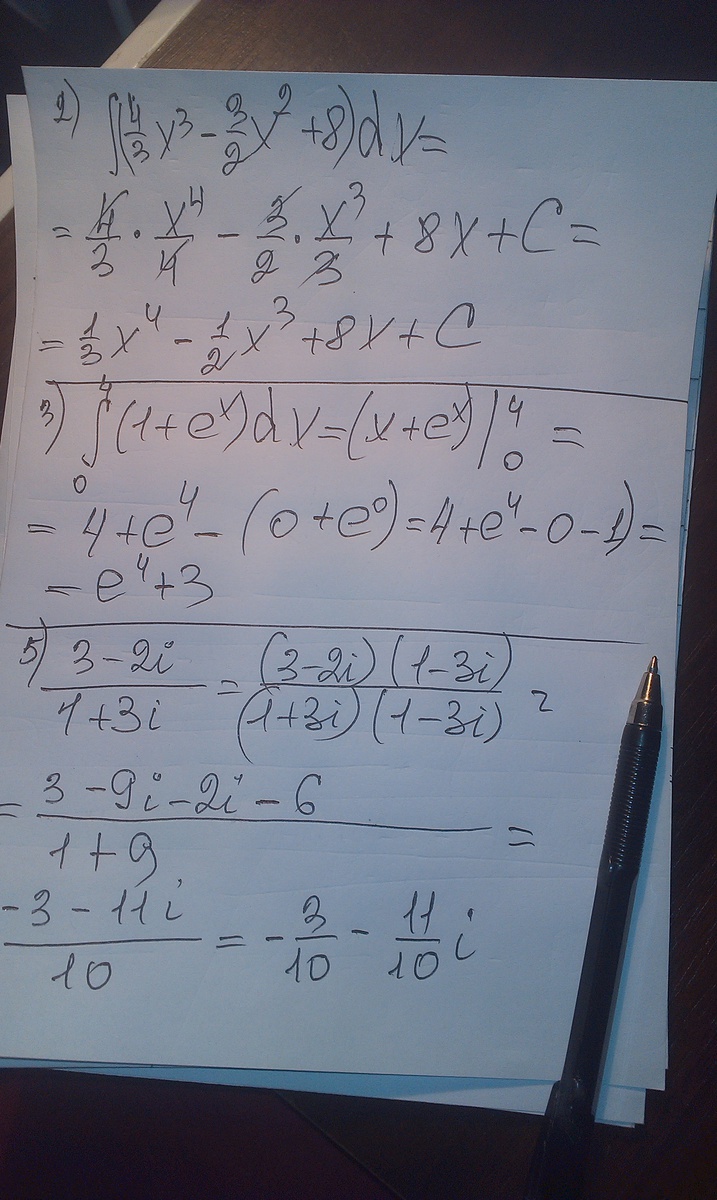 2) ∫(4/3 x³ - 3/2 x² + 8)dx =
= 4/3 · x⁴/4 - 3/2 · x³/3 + 8x + C =
= 1/3 x⁴ - 1/2 x³ + 8x + C
3) ∫₀⁴ (1 + eˣ)dx = (x + eˣ)|₀⁴ =
= 4 + e⁴ - (0 + e⁰) = 4 + e⁴ - 0 - 1) =
= e⁴ + 3
5) (3 - 2i)/(1 + 3i) = (3 - 2i)(1 - 3i)/(1 + 3i)(1 - 3i) =
= (3 - 9i - 2i - 6)/(1 + 9) =
(-3 - 11i)/10 = - 3/10 - 11/10 i